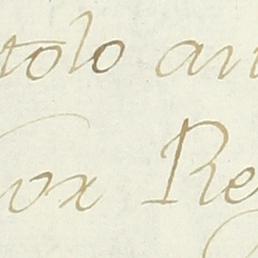 tolo an
vox Re